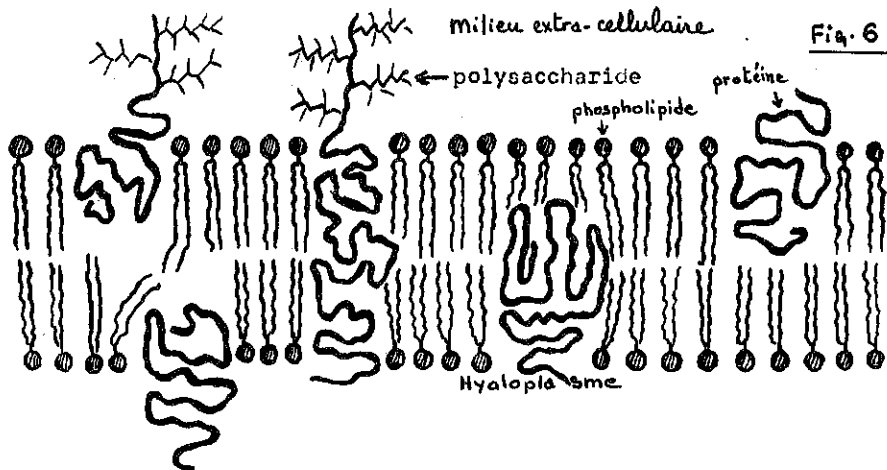 milieu extra-cellulaire
Fig. 6
polysaccharide
protéine
phospholipide
Hyaloplasme